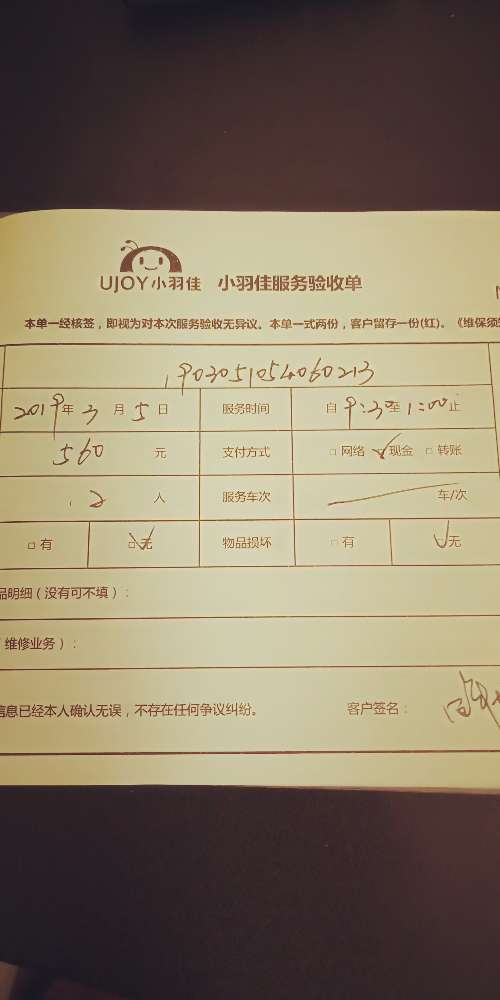 UJOY小羽佳 小羽佳服务验收单
本单一经核签，即视为对本次服务验收无异议。本单一式两份，客户留存一份(红)。《维保须知
190305105406 0213
2019年 3 月 5 日 服务时间 自 9:30至 1:00止
560 元 支付方式 □ 网络 ☑现金 □ 转账
2 人 服务车次 车/次
□ 有 ☑无 物品损坏 □ 有 ☑无
品明细（没有可不填）：
维修业务）：
信息已经本人确认无误，不存在任何争议纠纷。 客户签名：